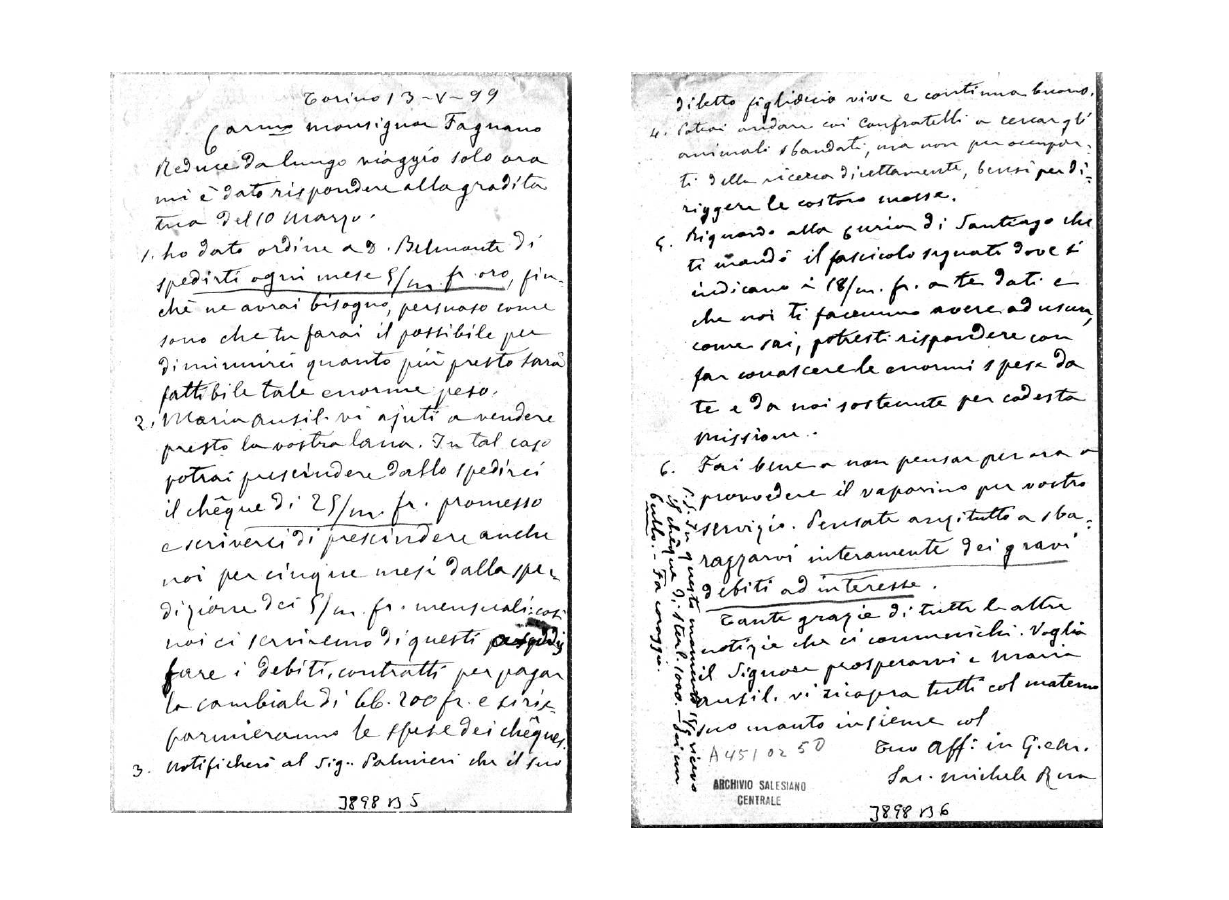 Torino 13-V-99
Carmo monsignor Fagnano
Reduce da lungo viaggio solo ora
mi è dato rispondere alla gradita
tua del 10 Marzo.
1. ho dato ordine a D. Belmonte di
spedirti ogni mese 5/m. fr. oro, fin-
chè ne avrai bisogno, persuaso come
sono che tu farai il possibile per
diminuirci quanto più presto sarà
fattibile tale enorme peso.
2. Maria Ausil. vi ajuti a vendere
presto la vostra lana. In tal caso
potrai prescindere dallo spedirci
il chêque di 25/m. fr. promesso
e scriverci di prescindere anche
noi per cinque mesi dalla spe-
dizione dei 5/m. fr. mensuali: così
noi ci serviremo di questi
fare i debiti contratti per pagar
la cambiale di 66.200 fr. e si ris-
parmieranno le spese dei chêques.
3. Notificherò al Sig. Palmieri che il suo
J898 B 5
diletto figlioccio vive e continua buono.
4. Potrai andare coi Confratelli a cercar gli
animali sbandati, ma non per occupar-
ti della ricerca direttamente, bensì per di-
riggere le costoro mosse.
5. Riguardo alla Curia di Santiago che
ti mandò il fascicolo segnati dove si
indicano i 18/m. fr. a te dati e
che noi ti facemmo avere ad usum,
come sai, potresti rispondere con
far conoscere le enormi spese da
te e da noi sostenute per codesta
missione.
6. Fai bene a non pensar per ora a
provvedere il vaporino per vostro
servizio. Pensate anzitutto a sba-
razzarvi interamente dei gravi
debiti ad interesse.
Tante grazie di tutte le altre
notizie che ci comunichi. Voglia
il Signore prosperarvi e Maria
Ausil. vi ricopra tutti col materno
suo manto insieme col
Tuo Aff: in G. e M.
Sac. Michele Rua
P.S. In questo momento ricevo
chêque di sterl. 1000. - Sei un
bullo. - Fa coraggio.
A 4510250
ARCHIVIO SALESIANO
CENTRALE
J898 B 6